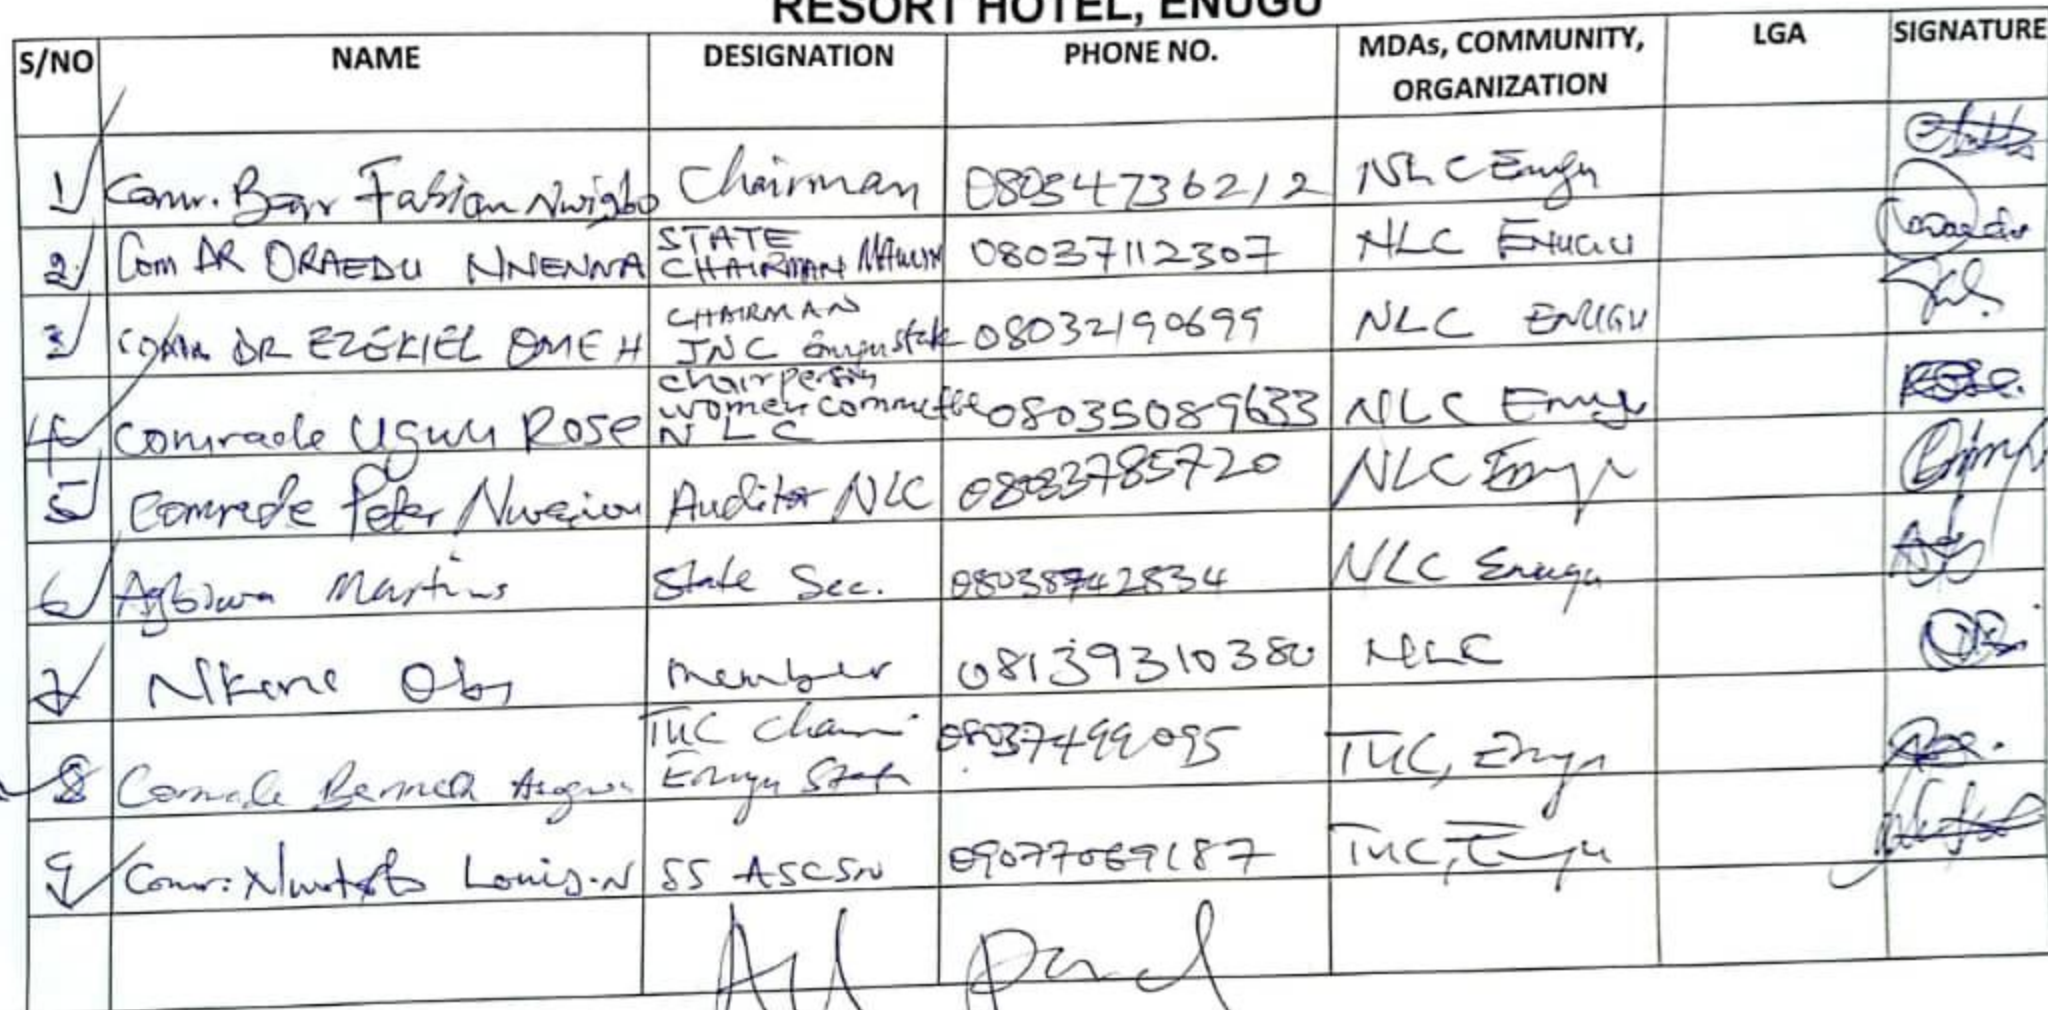 RESORT HOTEL, ENUGU
S/NO NAME DESIGNATION PHONE NO. MDAs, COMMUNITY, ORGANIZATION LGA SIGNATURE
1 Comr. Barr Fabian Nwigbo Chairman 08054736212 NLC Enugu
2 Com DR ORAEDU NNENNA STATE CHAIRMAN 08037112307 NLC ENUGU
3 COMR DR EZEKIEL OMEH CHAIRMAN JNC Enugu state 08032190699 NLC ENUGU
4 Comrade Ugwu Rose Chairperson women committee NLC 08035089633 NLC Enugu
5 Comrade Peter Auditor NLC 08033785720 NLC Enugu
6 Martins State Sec. 08038742834 NLC Enugu
7 Nkene Oby member 08139310380 NLC
8 Comrade TUC Chair Enugu State 08037499095 TUC, Enugu
9 Comr: Louis. N SS ASCSN 09077069187 TUC, Enugu
All paid